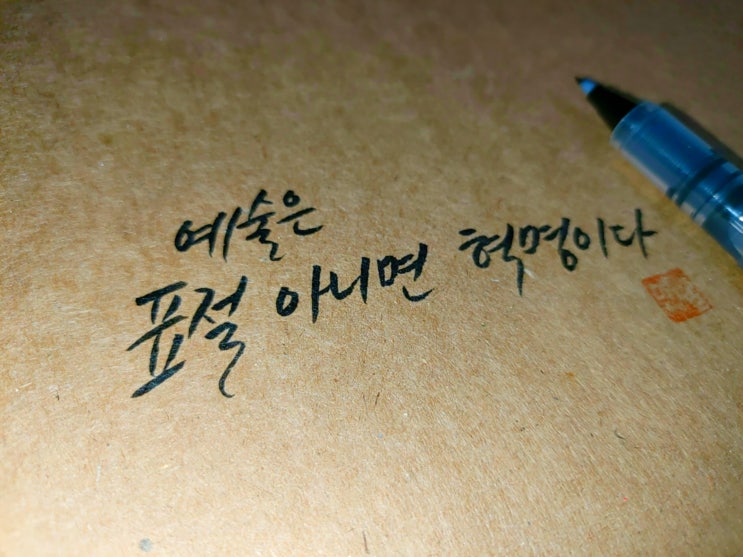 예술은
표절 아니면 혁명이다